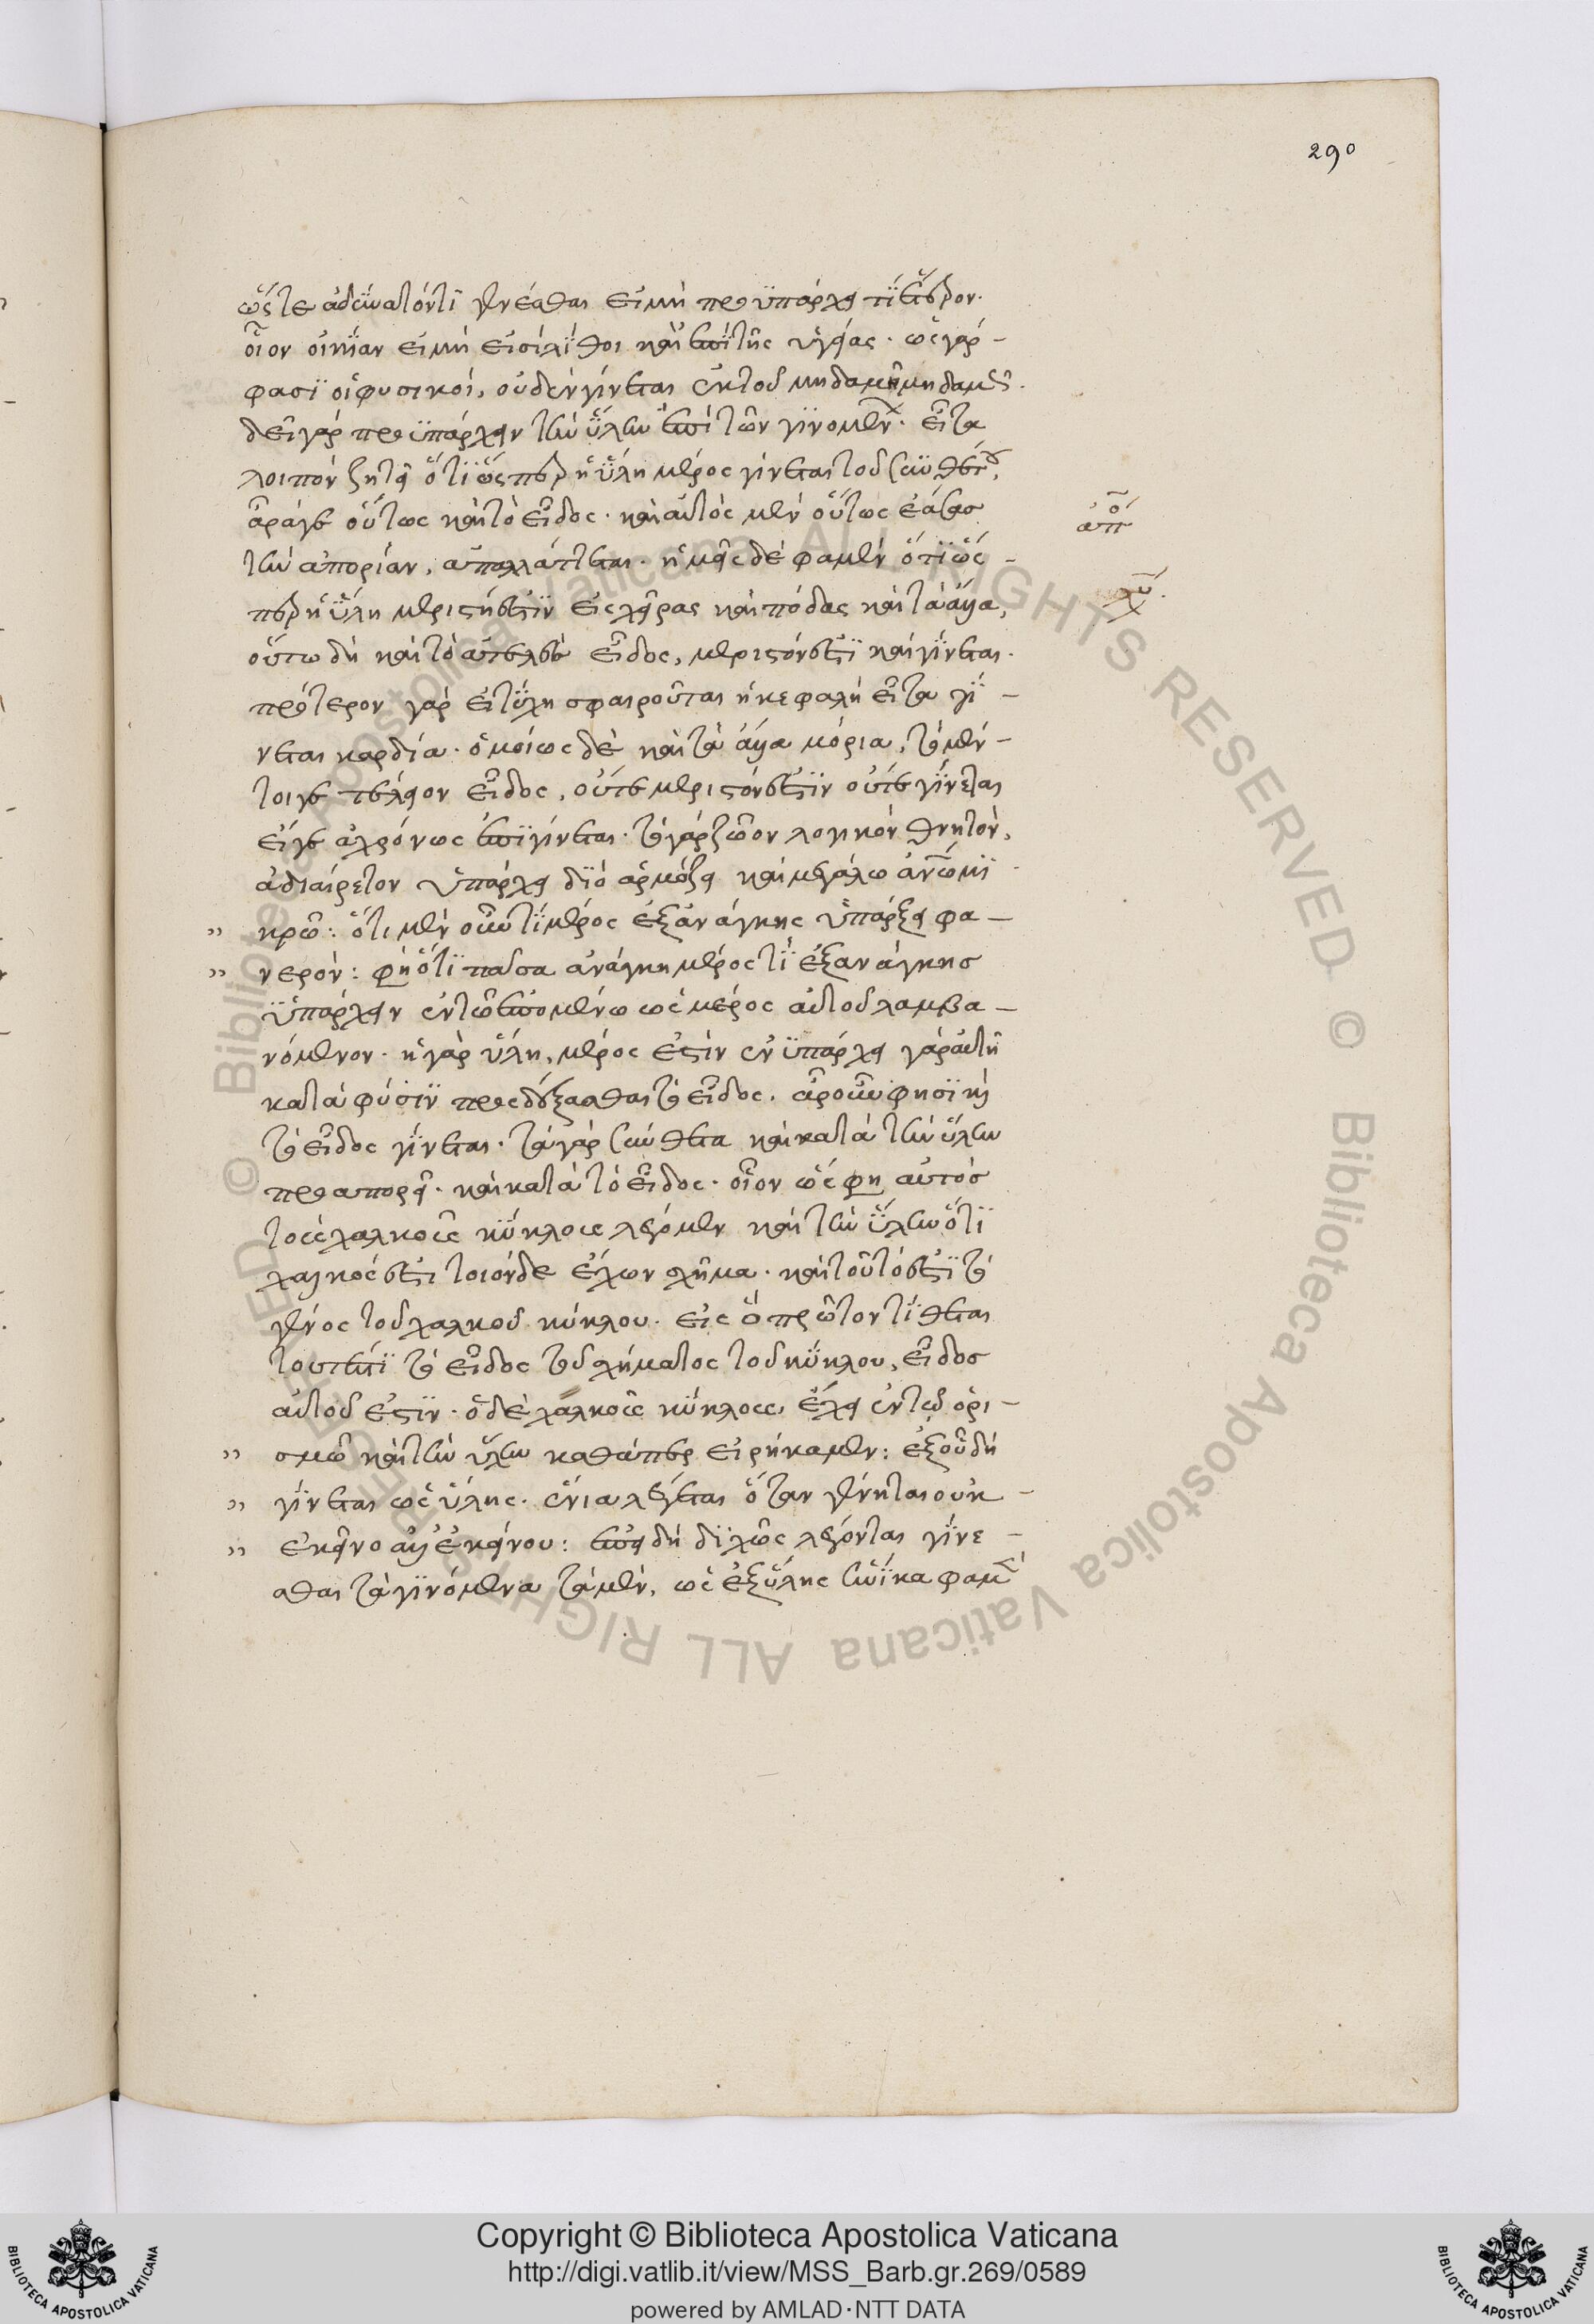 290
ὥστε ἀδύνατόν τι γενέσθαι εἰ μὴ προϋπάρχει τι ἕτερον.
οἷον οἰκίαν εἰ μὴ εἰσὶ λίθοι καὶ ἐπὶ τῆς ὑγείας. ὡς γάρ
φασιν οἱ φυσικοί, οὐδὲν γίνεται ἐκ τοῦ μηδαμῆ μηδαμῶς.
δεῖ γὰρ προϋπάρχειν τὴν ὕλην ἐπὶ τῶν γινομένων. εἶτα
λοιπὸν ζητεῖ ὅτι ὥσπερ ἡ ὕλη μέρος γίνεται τοῦ συνθέτου,
ἆρά γε οὕτως καὶ τὸ εἶδος. καὶ αὐτὸς μὲν οὕτως ἐάσας
ἀπο
τὴν ἀπορίαν, ἀπαλλάττεται. ἡμεῖς δέ φαμεν ὅτι ὥς
λύ
περ ἡ ὕλη μεριστή ἐστιν εἰς χεῖρας καὶ πόδας καὶ τὰ ἄλλα,
οὕτω δὴ καὶ τὸ ἀτελὲς εἶδος, μεριστόν ἐστι καὶ γίνεται.
πρότερον γὰρ εἰ τύχη σφαιροῦται ἡ κεφαλὴ εἶτα γί
νεται καρδία. ὁμοίως δὲ καὶ τὰ ἄλλα μόρια, τὸ μέν
τοι γε τέλειον εἶδος, οὔτε μεριστόν ἐστιν οὔτε γίνεται
εἴγε ἀχρόνως ἐπιγίνεται. τὸ γὰρ ζῶον λογικὸν θνητόν,
ἀδιαίρετον ὑπάρχει διὸ ἁρμόζει καὶ μεγάλω ἀνθρώπω καὶ μι
κρῶ: ὅτι μὲν οὖν τι μέρος ἐξ ἀνάγκης ὑπάρξει φα
νερόν: φησὶ ὅτι πᾶσα ἀνάγκη μέρος τι ἐξ ἀνάγκης
ὑπάρχειν ἐν τῶ ἑπομένω ὡς μέρος αὐτοῦ λαμβα
νόμενον. ἡ γὰρ ὕλη, μέρος ἐστὶν ἐνϋπάρχει γὰρ αὐτῆ
κατὰ φύσιν προσδέξασθαι τὸ εἶδος. ἆρ' οὖν φησι καὶ
τὸ εἶδος γίνεται. τὰ γὰρ σύνθετα καὶ κατὰ τὴν ὕλην
προαπορεῖ. καὶ κατὰ τὸ εἶδος. οἷον ὥς φησι αὐτός
τοὺς χαλκοῦς κύκλους λέγομεν καὶ τὴν ὕλην ὅτι
χαλκός ἐστι τοιόνδε ἔχων σχῆμα. καὶ τοῦτό ἐστι τὸ
γένος τοῦ χαλκοῦ κύκλου. εἰς ὃ πρῶτον τίθεται
τουτέστι τὸ εἶδος τοῦ σχήματος τοῦ κύκλου, εἶδος
αὐτοῦ ἐστιν. ὁ δὲ χαλκοῦς κύκλος, ἔχει ἐν τῶ ὁρι
σμῶ καὶ τὴν ὕλην καθάπερ εἰρήκαμεν: ἐξ οὗ δὴ
γίνεται ὡς ὕλης. ἔνια λέγεται ὅταν γένηται οὐκ
ἐκεῖνο ἀλλ' ἐκείνου: ἐπεὶ δὴ διχῶς λέγονται γίνε
σθαι τὰ γινόμενα τὰ μέν, ὡς ἐξ ὕλης ἡνίκα φαμὲν